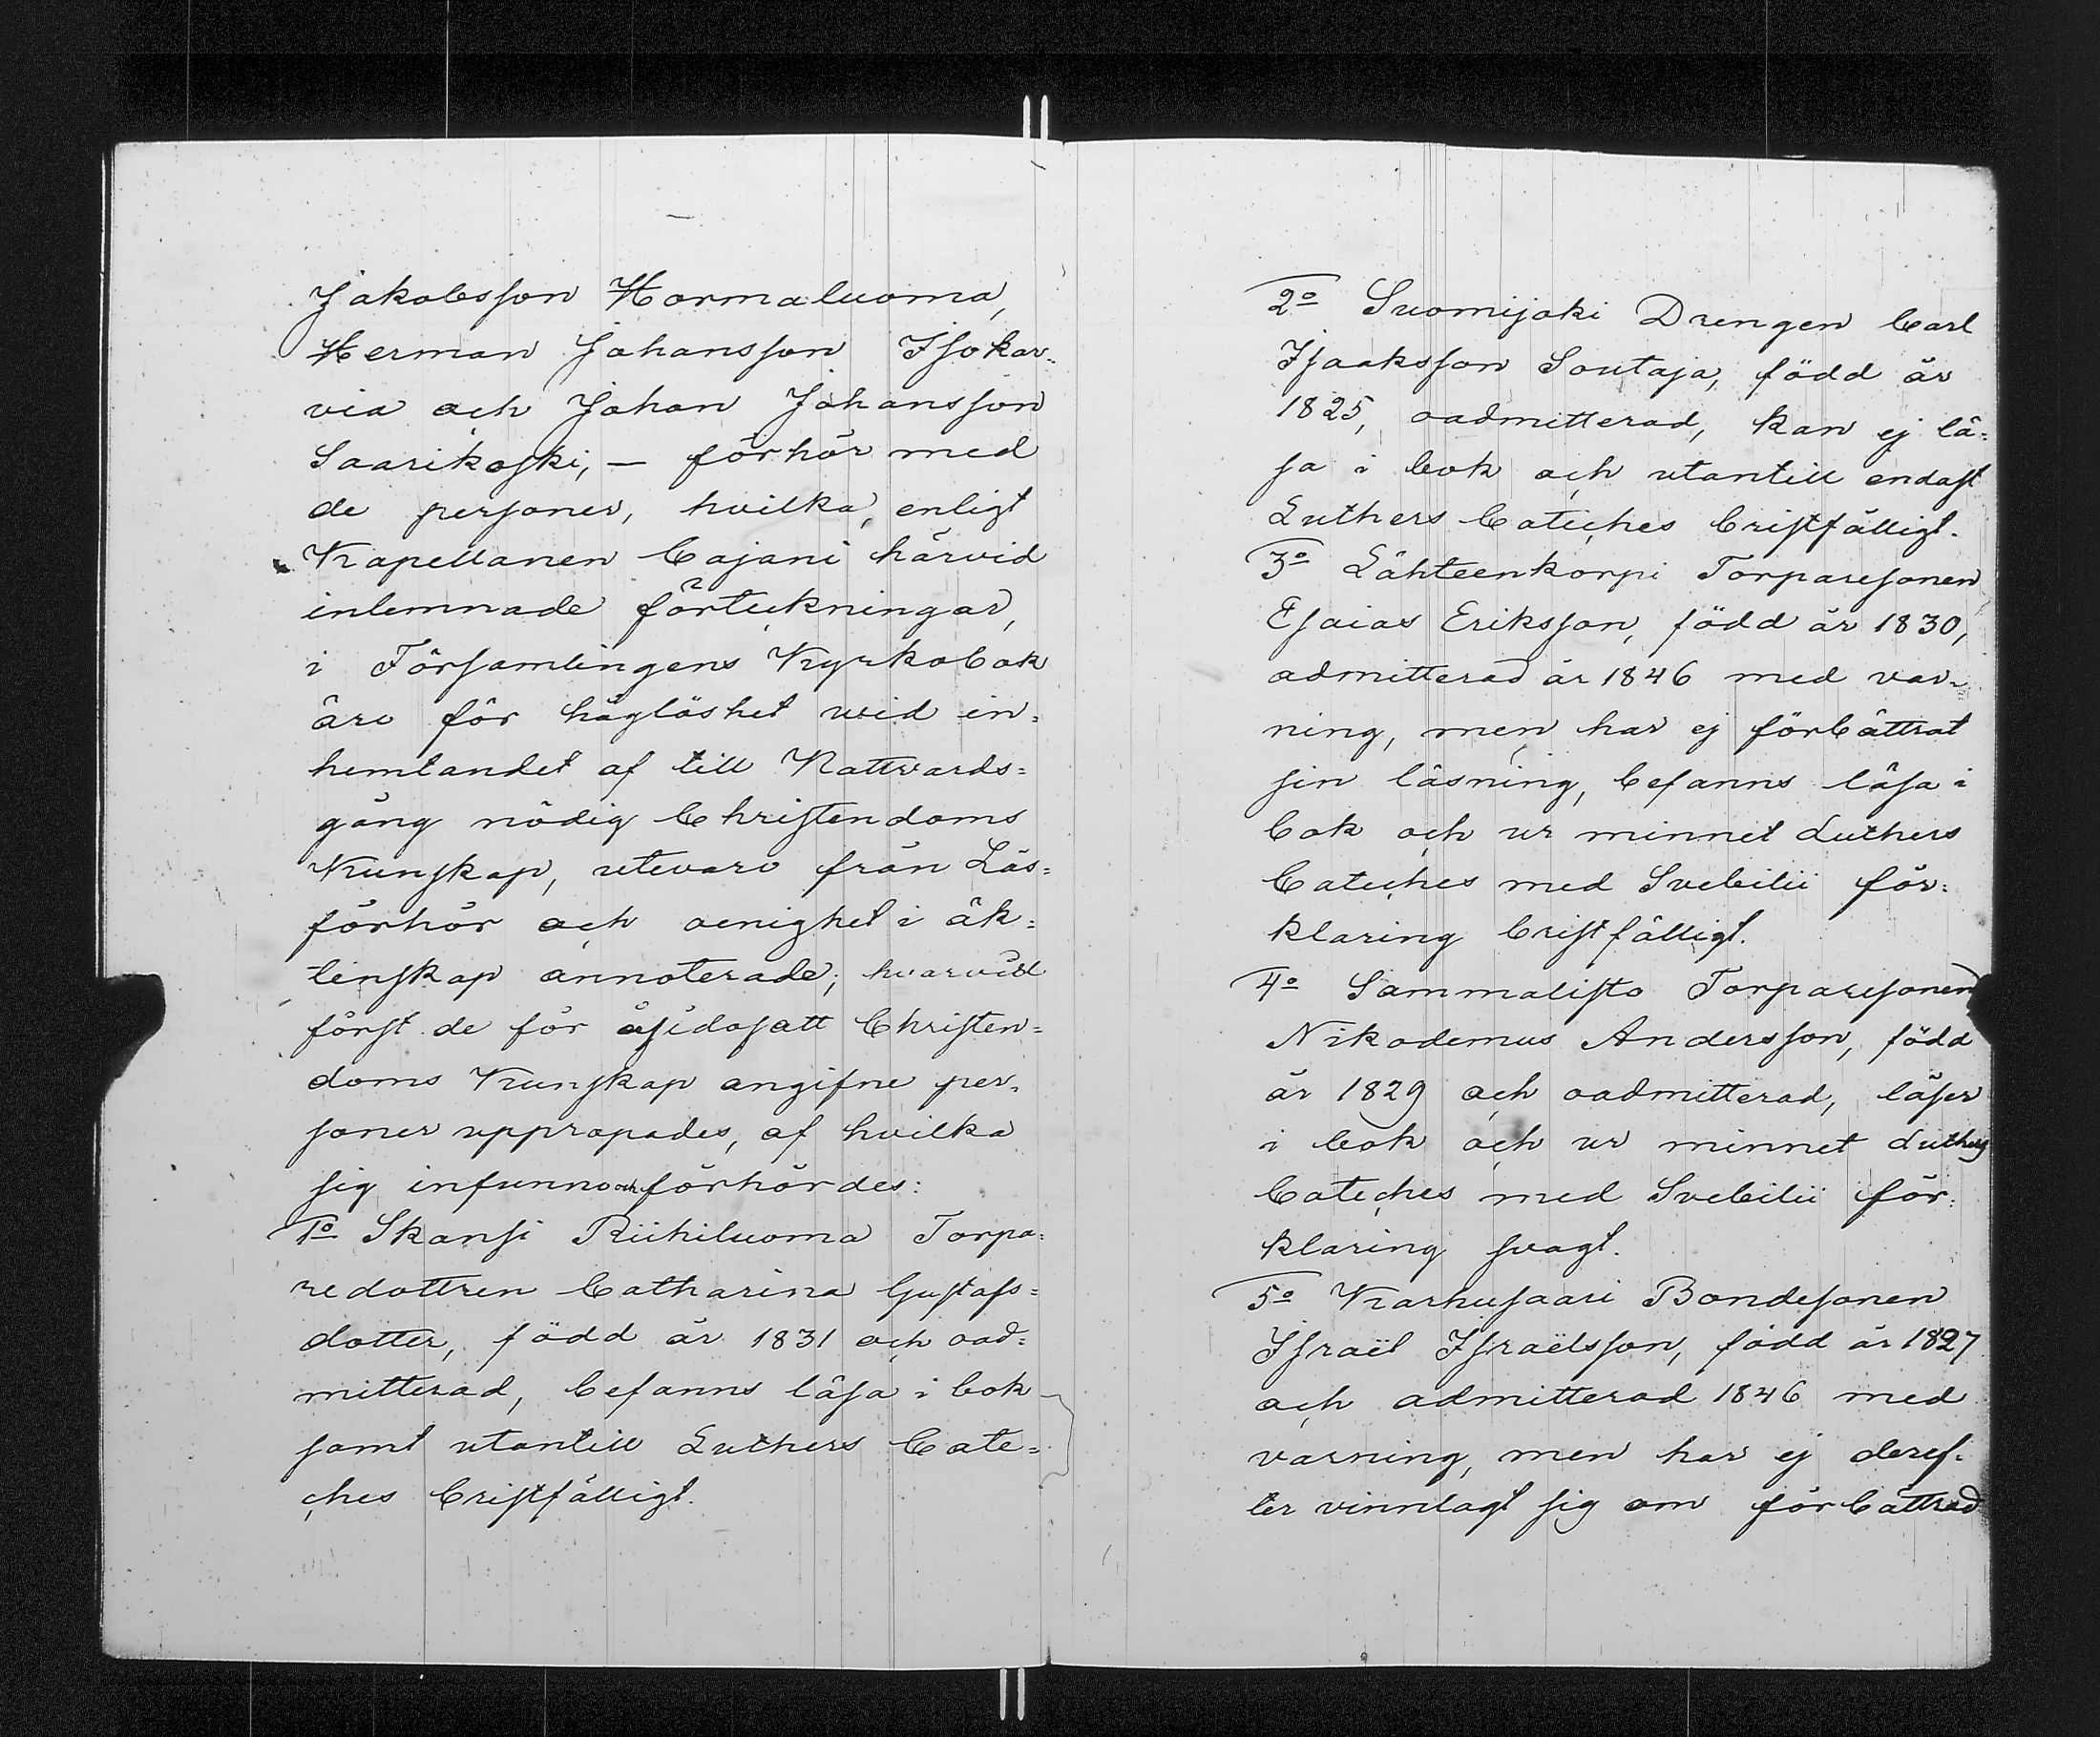 Jakobsson Hormaluoma,
Herman Johansson Isokar-
via och Johan Johansson
Saarikoski, — förhör med
de personer, hvilka, enligt
Kapellanen Cajani härvid
inlemnade förteckningar,
i Församlingens Kyrkobok
äro för håglöshet wid in=
hemtandet af till Nattvards=
gång nödig Christendoms
Kunskap, utevaro från Läs=
förhör och oenighet i äk=
tenskap annoterade; hvarvid
först de för åsidosatt Christen=
doms Kunskap angifne per-
soner uppropades, af hvilka
sig infunno och förhördes:
1o Skansi Riihiluoma Torpa=
redottren Catharina Gustafs=
dotter, född år 1831 och oad=
mitterad, befanns läsa i bok
samt utantill Luthers Cate=
ches bristfälligt.
2o Suomijoki Drengen Carl
Isaaksson Soutaja, född år
1825, oadmitterad, kan ej lä=
sa i bok och utantill endast
Luthers Cateches bristfälligt.
3o Lähteenkorpi Torparesonen
Esaias Eriksson, född år 1830,
admitterad år 1846 med var-
ning, men har ej förbättrat
sin läsning, befanns läsa i
bok och ur minnet Luthers
Cateches med Svebilii för=
klaring bristfälligt.
4o Sammalisto Torparesonen
Nikodemus Andersson, född
år 1829 och oadmitterad, läser
i bok och ur minnet Luthers
Cateches med Svebilii för=
klaring svagt.
5o Karhusaari Bondesonen
Israël Israëlsson, född år 1827
och admitterad 1846 med
varning, men har ej deref-
ter vinnlagt sig om förbättrad